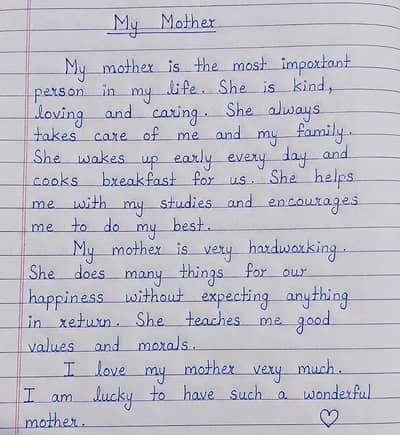 My Mother
My mother is the most important
person in my life. She is kind,
loving and caring. She always
takes care of me and my family.
She wakes up early every day and
cooks breakfast for us. She helps
me with my studies and encourages
me to do my best.
My mother is very hardworking.
She does many things for our
happiness without expecting anything
in return. She teaches me good
values and morals.
I love my mother very much.
I am lucky to have such a wonderful
mother. ♡